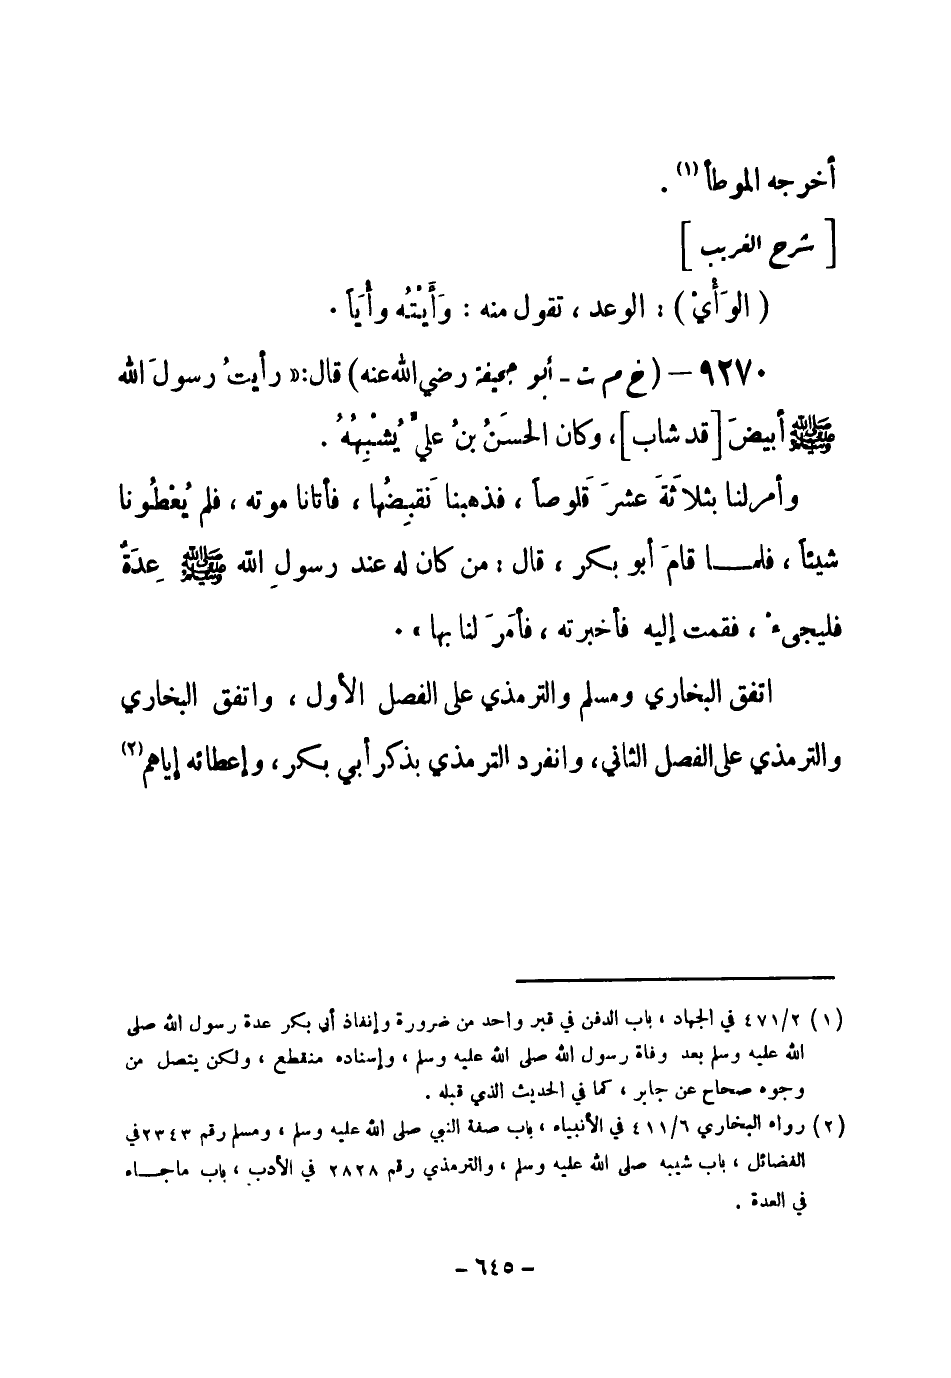 أخرجه الموطأ (١) .
[ شرح الغريب ]
( الوَأْيْ ) : الوعد ، تقول منه : وَأَيْتُه وأْيَاً .
٩٢٧٠ – ( خ م ت - أبو جحيفة رضي الله عنه ) قال : « رأيتُ رسولَ الله
ﷺ أبيضَ [قد شاب] ، وكان الحسَنُ بنُ عليٍّ يُشْبِهُهُ .
وأمر لنا بثلاثَةَ عشرَ قَلوصاً ، فذهبنا نَقبِضُها ، فأتانا موته ، فلم يُعْطُونا
شيئاً ، فلمــا قامَ أبو بكر ، قال : من كان له عند رسولِ الله ﷺ عِدَةٌ
فليجىءْ ، فقمت إليه فأخبرته ، فأمَرَ لنا بها » .
اتفق البخاري ومسلم والترمذي على الفصل الأول ، واتفق البخاري
والترمذي على الفصل الثاني ، وانفرد الترمذي بذكر أبي بكر ، وإعطائه إياهم (٢)
(١) ٤٧١/٢ في الجهاد ، باب الدفن في قبر واحد من ضرورة وإنفاذ أبي بكر عدة رسول الله صلى
الله عليه وسلم بعد وفاة رسول الله صلى الله عليه وسلم ، وإسناده منقطع ، ولكن يتصل من
وجوه صحاح عن جابر ، كما في الحديث الذي قبله .
(٢) رواه البخاري ٤١١/٦ في الأنبياء ، باب صفة النبي صلى الله عليه وسلم ، ومسلم رقم ٢٣٤٣ في
الفضائل ، باب شيبه صلى الله عليه وسلم ، والترمذي رقم ٢٨٢٨ في الأدب ، باب ماجــاء
في العدة .
– ٦٤٥ –